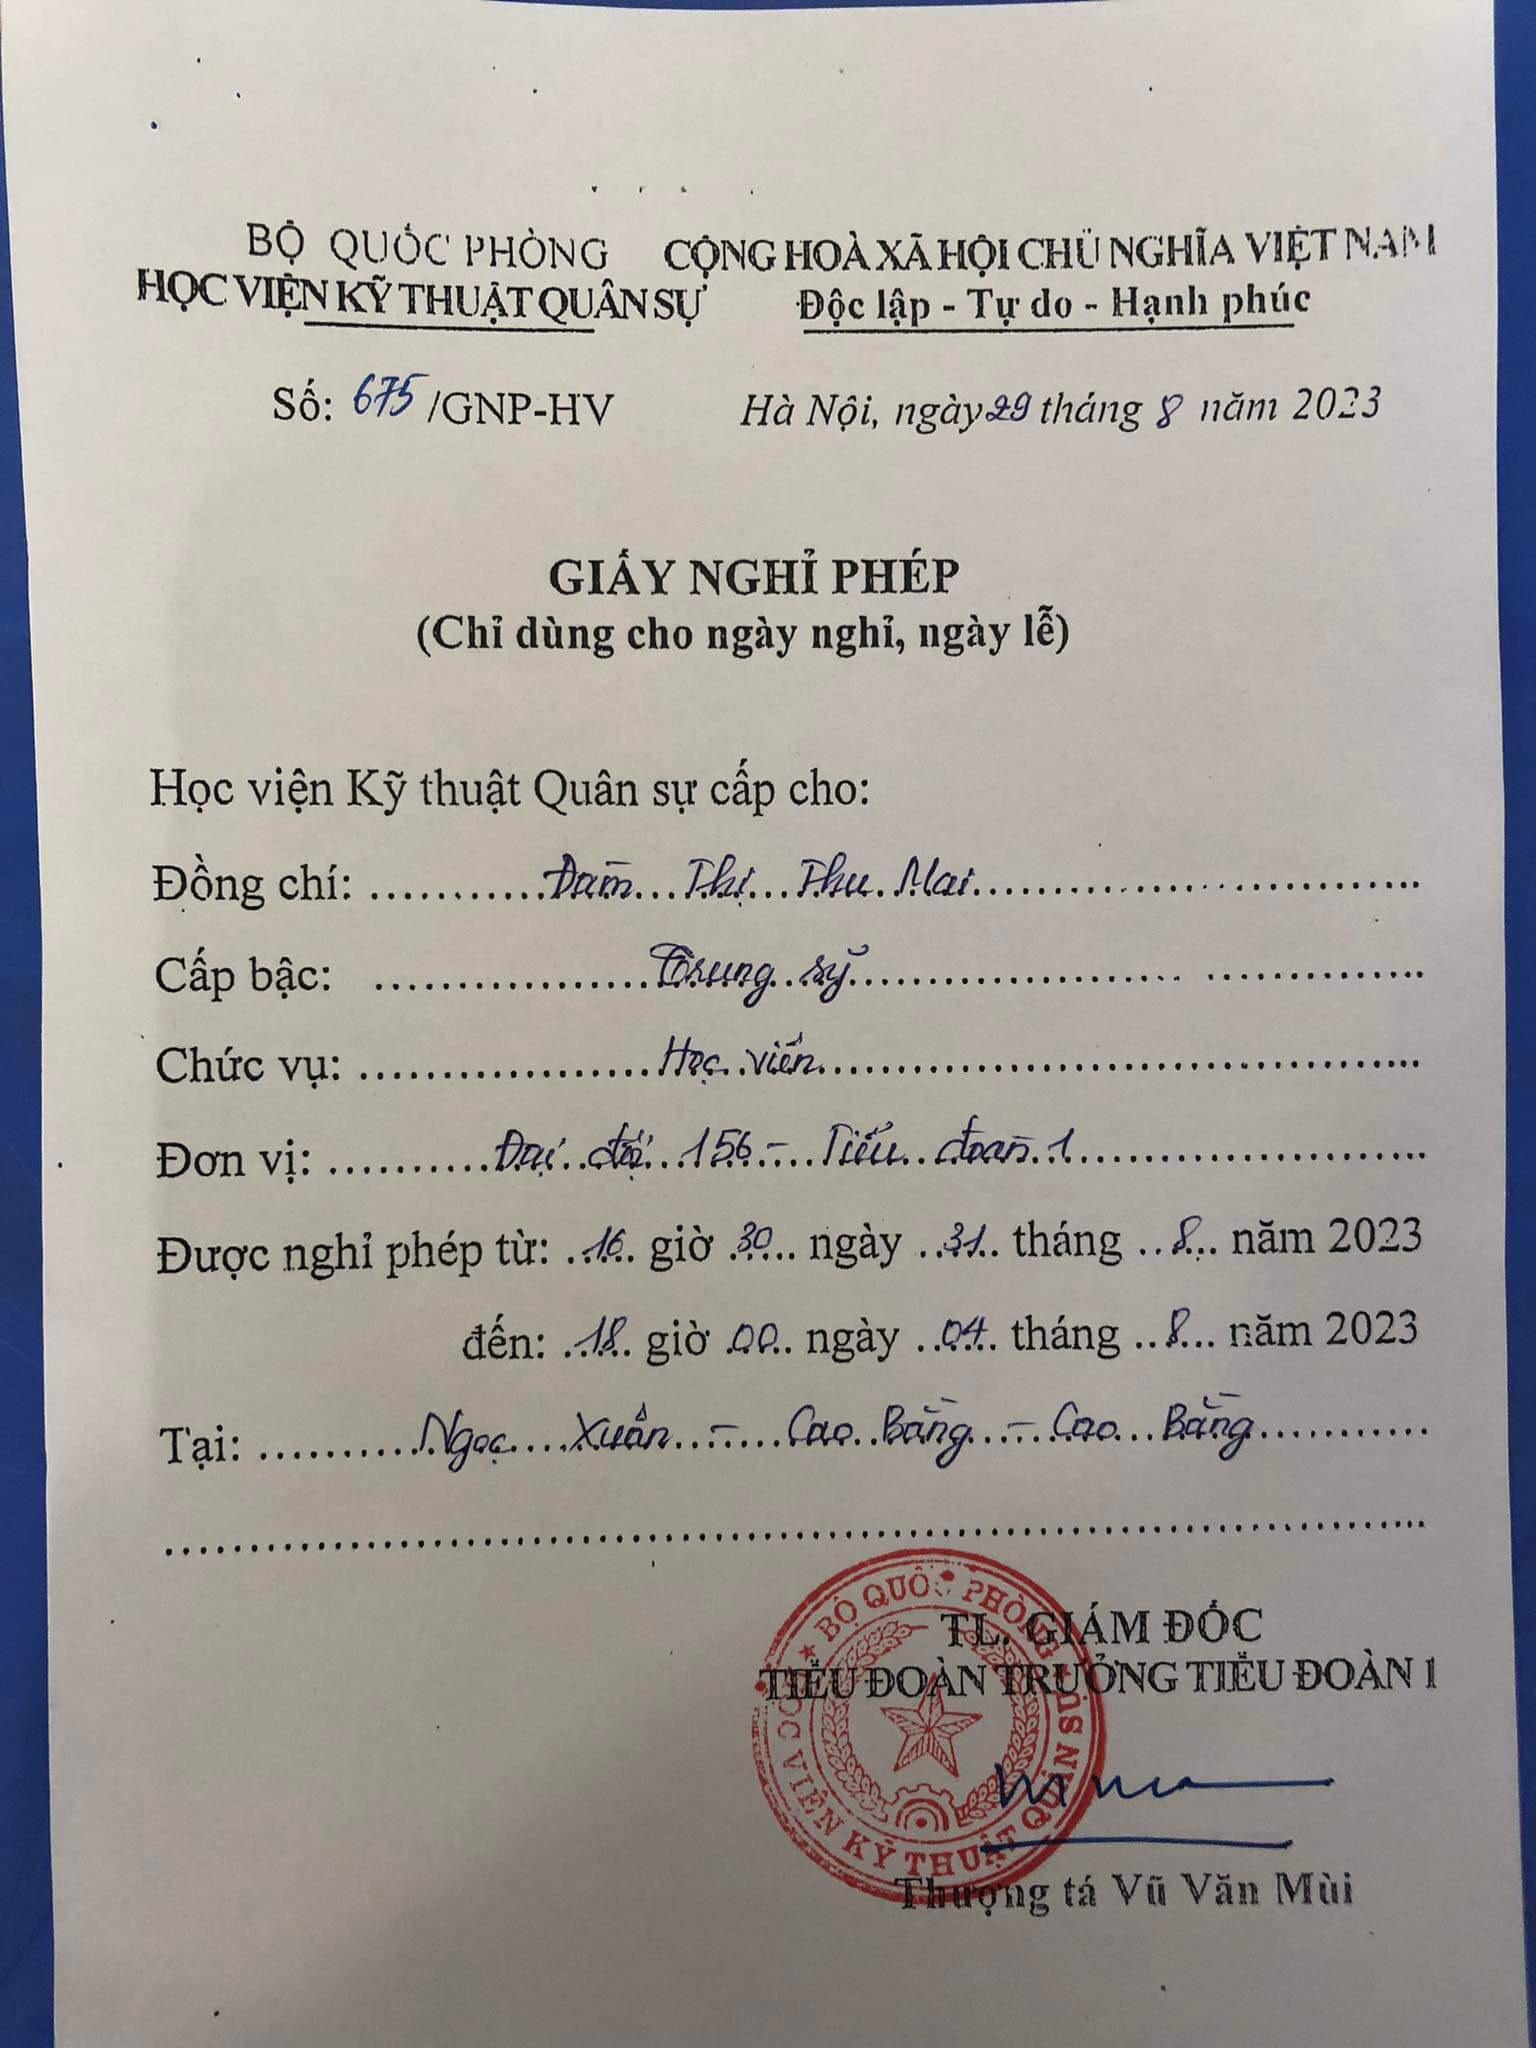 BỘ QUỐC PHÒNG
HỌC VIỆN KỸ THUẬT QUÂN SỰ
CỘNG HOÀ XÃ HỘI CHỦ NGHĨA VIỆT NAM
Độc lập - Tự do - Hạnh phúc
Số: 675/GNP-HV
Hà Nội, ngày 29 tháng 8 năm 2023
GIẤY NGHỈ PHÉP
(Chỉ dùng cho ngày nghỉ, ngày lễ)
Học viện Kỹ thuật Quân sự cấp cho:
Đồng chí: Đàm Thị Thu Mai
Cấp bậc: Trung sỹ
Chức vụ: Học viên
Đơn vị: Đại đội 156 - Tiểu đoàn 1
Được nghỉ phép từ: 16 giờ 30 ngày 31 tháng 8 năm 2023
đến: 18 giờ 00 ngày 04 tháng 8 năm 2023
Tại: Ngọc Xuân - Cao Bằng - Cao Bằng
TL. GIÁM ĐỐC
TIỂU ĐOÀN TRƯỞNG TIỂU ĐOÀN 1
BỘ QUỐC PHÒNG
HỌC VIỆN KỸ THUẬT QUÂN SỰ
Thượng tá Vũ Văn Mùi